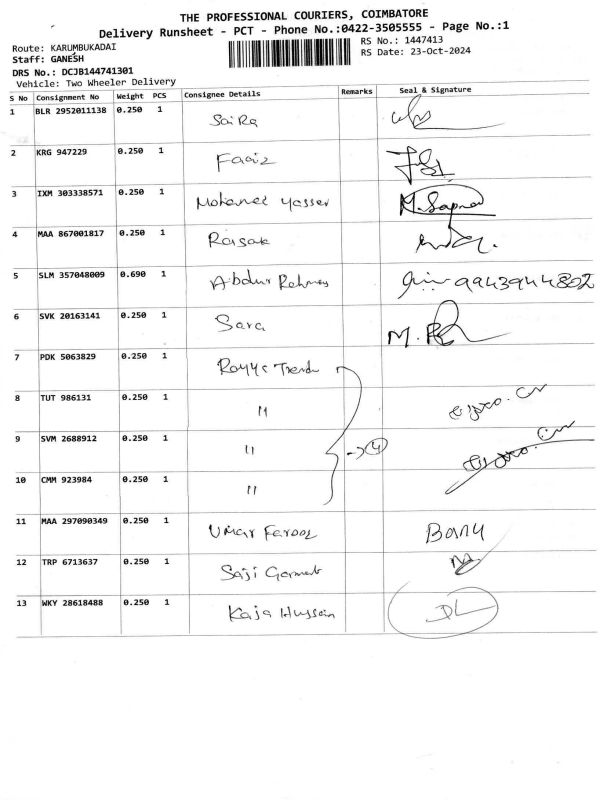 THE PROFESSIONAL COURIERS, COIMBATORE
Delivery Runsheet - PCT - Phone No.:0422-3505555 - Page No.:1
Route: KARUMBUKADAI RS No.: 1447413
Staff: GANESH RS Date: 23-Oct-2024
DRS No.: DCJB144741301
Vehicle: Two Wheeler Delivery
S No Consignment No Weight PCS Consignee Details Remarks Seal & Signature
1 BLR 2952011138 0.250 1 Saira
2 KRG 947229 0.250 1 Faaiz
3 IXM 303338571 0.250 1 Mohamed Yasser
4 MAA 867001817 0.250 1 Rasak
5 SLM 357048009 0.690 1 Abdur Rehman 9943944802
6 SVK 20163141 0.250 1 Sara
7 PDK 5063829 0.250 1 Trends
8 TUT 986131 0.250 1 "
9 SVM 2688912 0.250 1 " → 4
10 CMM 923984 0.250 1 "
11 MAA 297090349 0.250 1 Umar Farooq
12 TRP 6713637 0.250 1 Saji Garment
13 WKY 28618488 0.250 1 Kaja Hussain DL